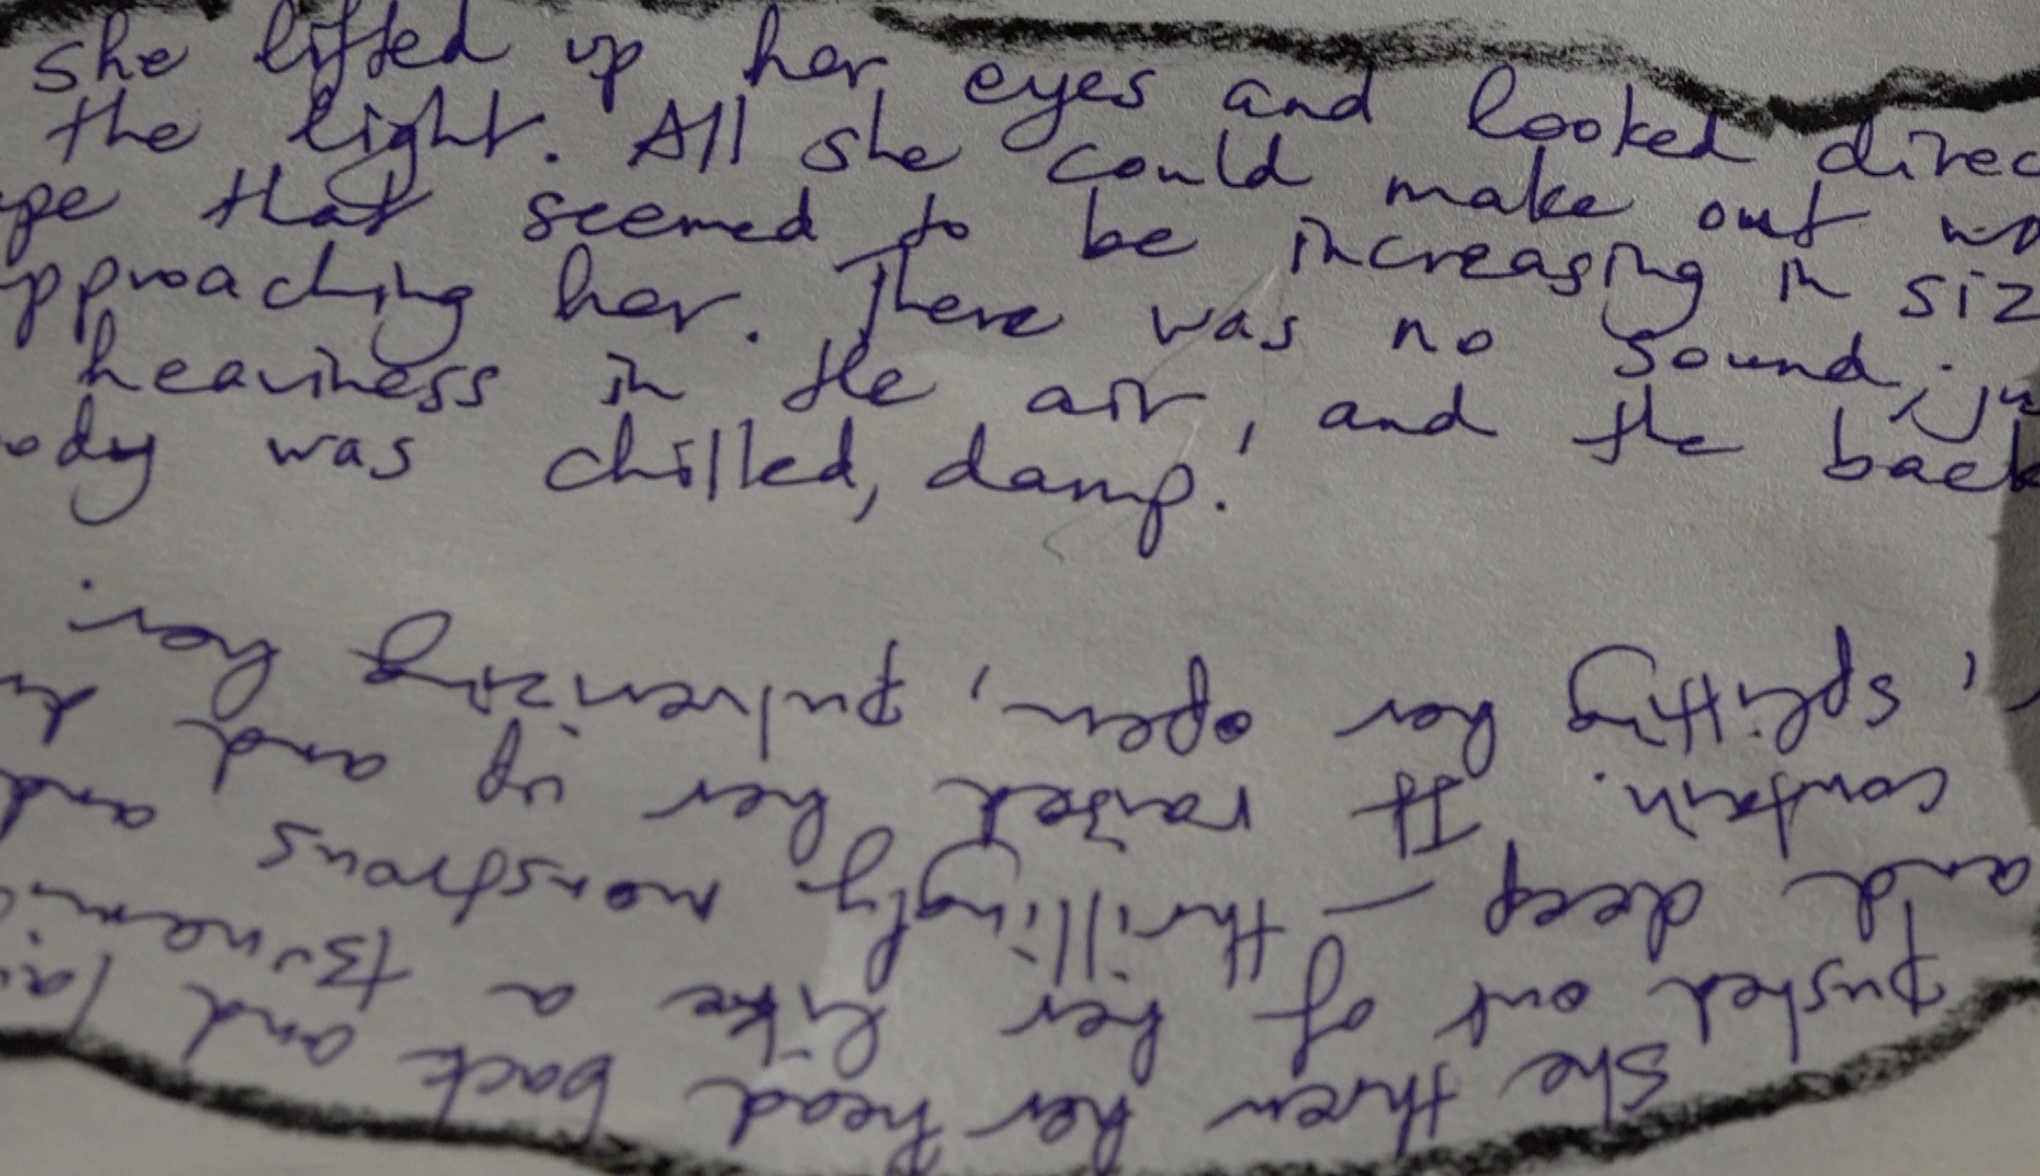 she lifted up her eyes and looked direc
the light. All she could make out wa
ape that seemed to be increasing in siz
pproaching her. There was no sound; ju
heaviness in the air, and the back
ody was chilled, damp.
She threw her head back and
pushed out of her like a Tsunami
and deep – thrillingly monstrous and
contain. It raised her up and
, splitting her open, pulverizing her.